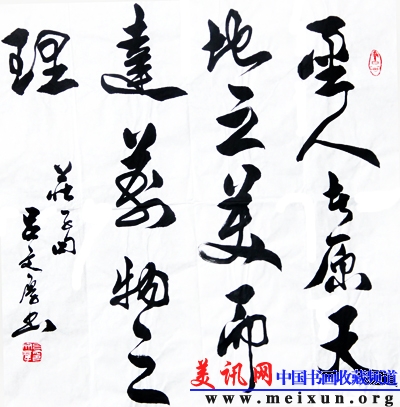 聖人者原天
地之美而
達萬物之
理
莊子句
吕文书
美讯网 中国书画收藏频道
www.meixun.org